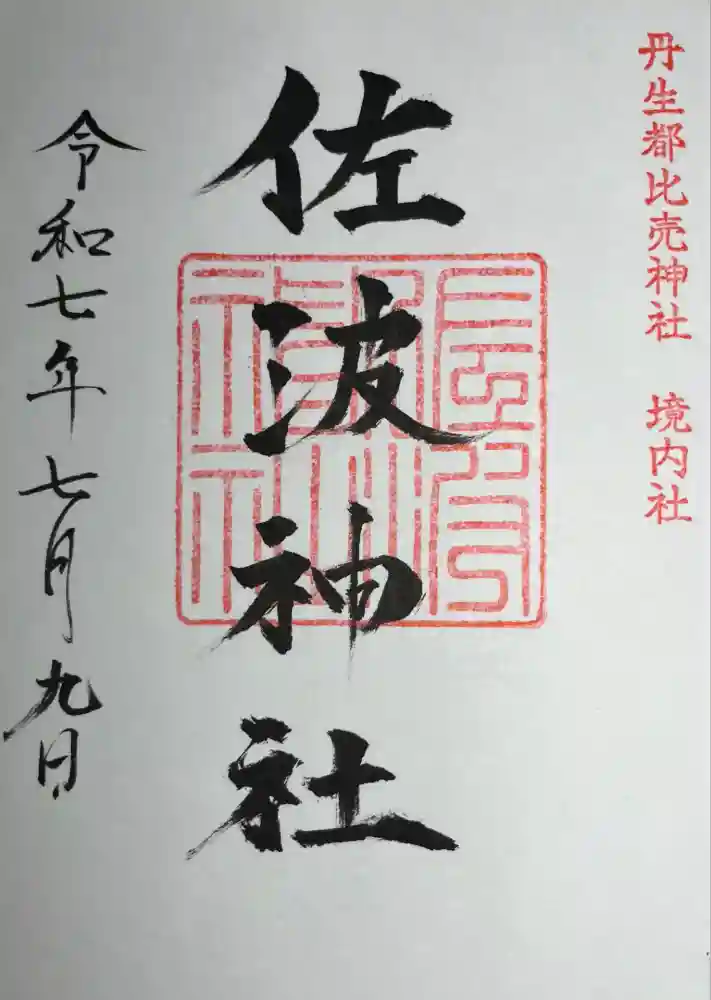 丹生都比売神社 境内社
佐波神社
令和七年七月九日